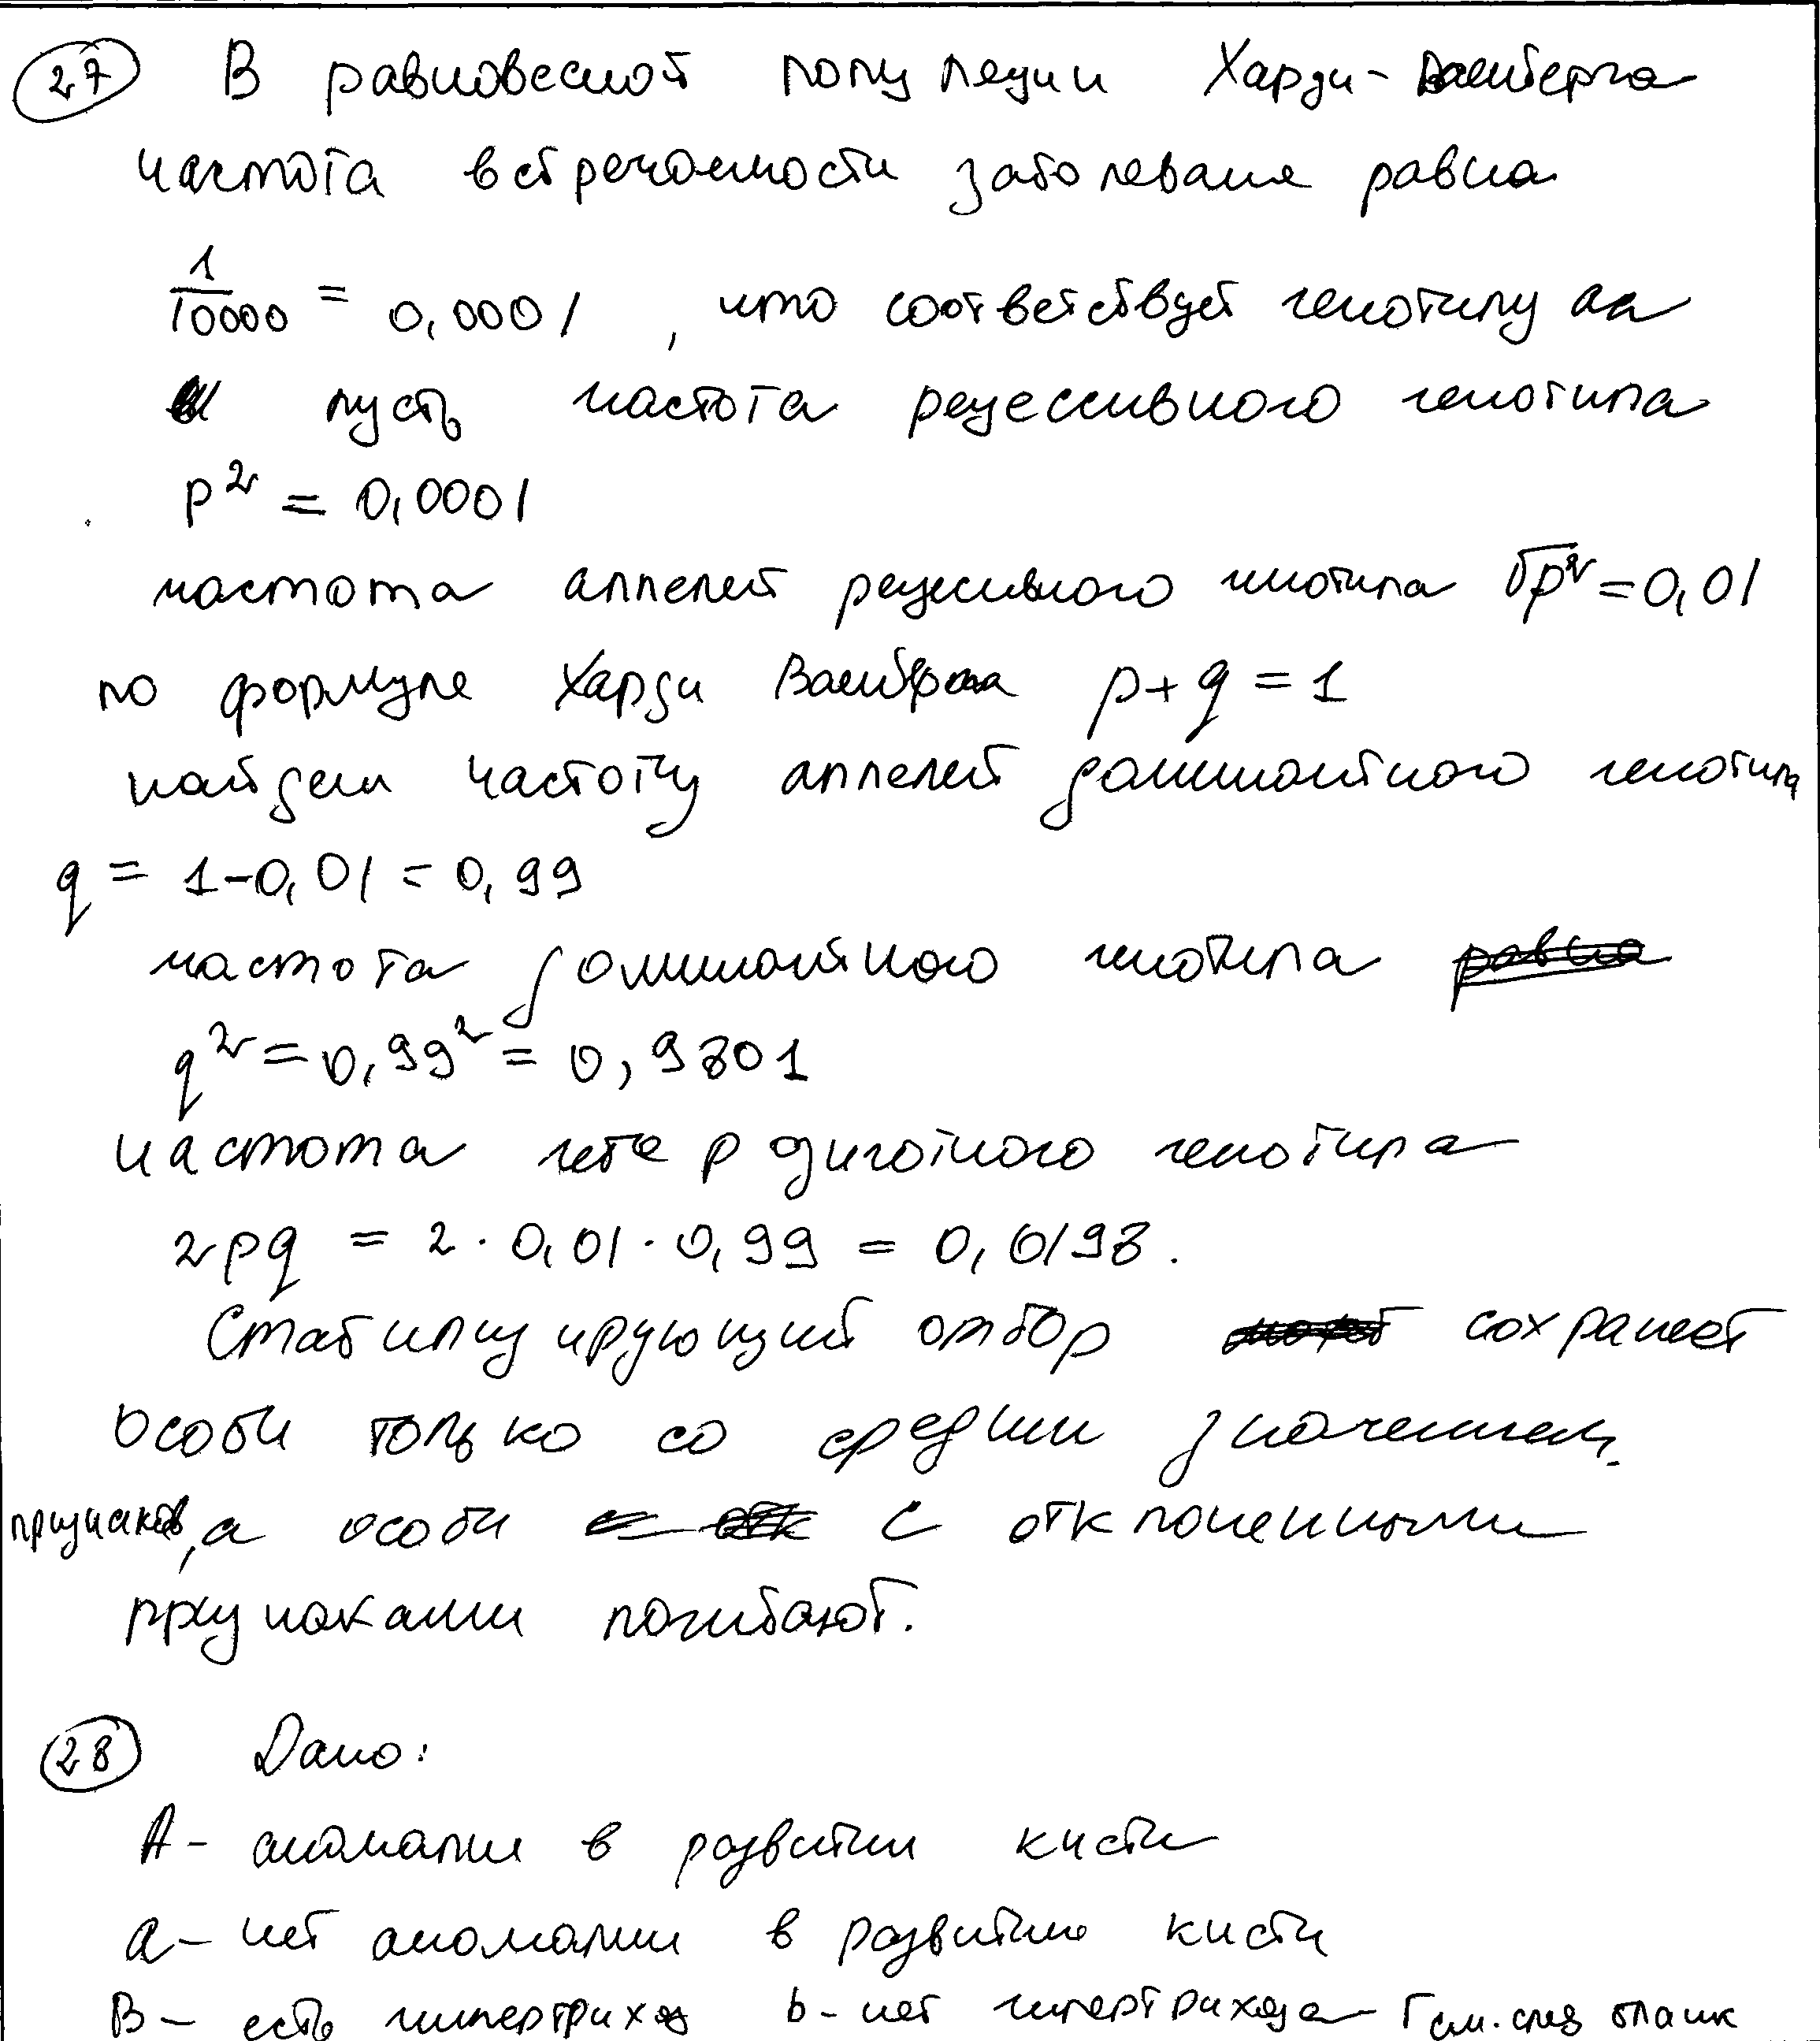 27 В равновесной популяции Харди-Вайнберга
частота встречаемости заболевания равна
1/10000 = 0,0001 , что соответствует генотипу аа
пусть частота рецессивного генотипа
p² = 0,0001
частота аллелей рецесивного генотипа √p² = 0,01
по формуле Харди Вайнберга p + q = 1
найдем частоту аллелей доминантного генотипа
q = 1-0,01 = 0,99
частота доминантного генотипа
q² = 0,99² = 0,9801
частота гетерозиготного генотипа
2pq = 2 · 0,01 · 0,99 = 0,0198.
Стабилизирующий отбор сохраняет
особи только со средним значением
признаков, а особи с отклоненными
признаками погибают.
28 Дано:
А - аномалии в развитии кисти
а - нет аномалии в развитии кисти
В - есть гипертрихоз b - нет гипертрихоза Г см. след бланк